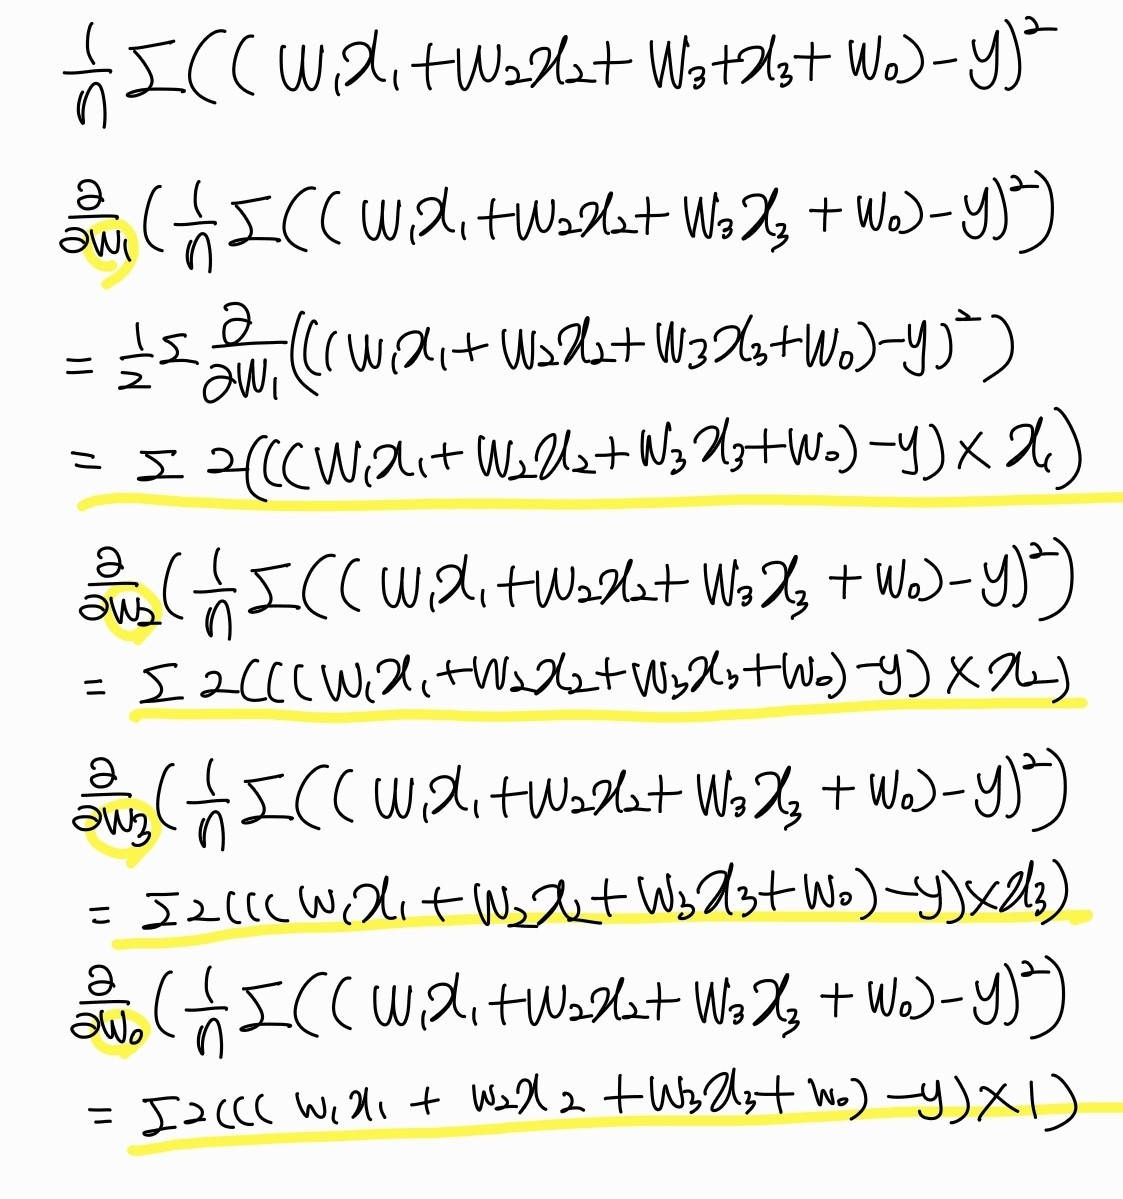 1/n Σ((w₁x₁+w₂x₂+w₃+x₃+w₀)-y)²
∂/∂w₁(1/n Σ((w₁x₁+w₂x₂+w₃x₃+w₀)-y)²)
= 1/2 Σ ∂/∂w₁(((w₁x₁+w₂x₂+w₃x₃+w₀)-y)²)
= Σ 2(((w₁x₁+w₂x₂+w₃x₃+w₀)-y)×x₁)
∂/∂w₂(1/n Σ((w₁x₁+w₂x₂+w₃x₃+w₀)-y)²)
= Σ 2(((w₁x₁+w₂x₂+w₃x₃+w₀)-y)×x₂)
∂/∂w₃(1/n Σ((w₁x₁+w₂x₂+w₃x₃+w₀)-y)²)
= Σ2(((w₁x₁+w₂x₂+w₃x₃+w₀)-y)×x₃)
∂/∂w₀(1/n Σ((w₁x₁+w₂x₂+w₃x₃+w₀)-y)²)
= Σ2(((w₁x₁+w₂x₂+w₃x₃+w₀)-y)×1)